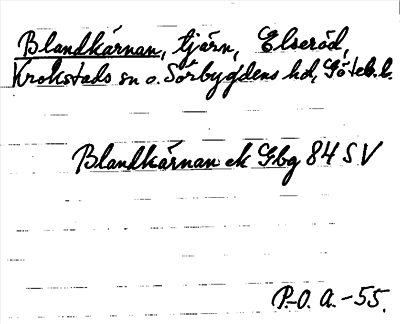 Blandkärnan, tjärn, Elseröd,
Krokstads sn o. Sörbygdens hd, Göteb.l.
Blandkärnan ek Gbg 84 SV
P.-O. A. -55.